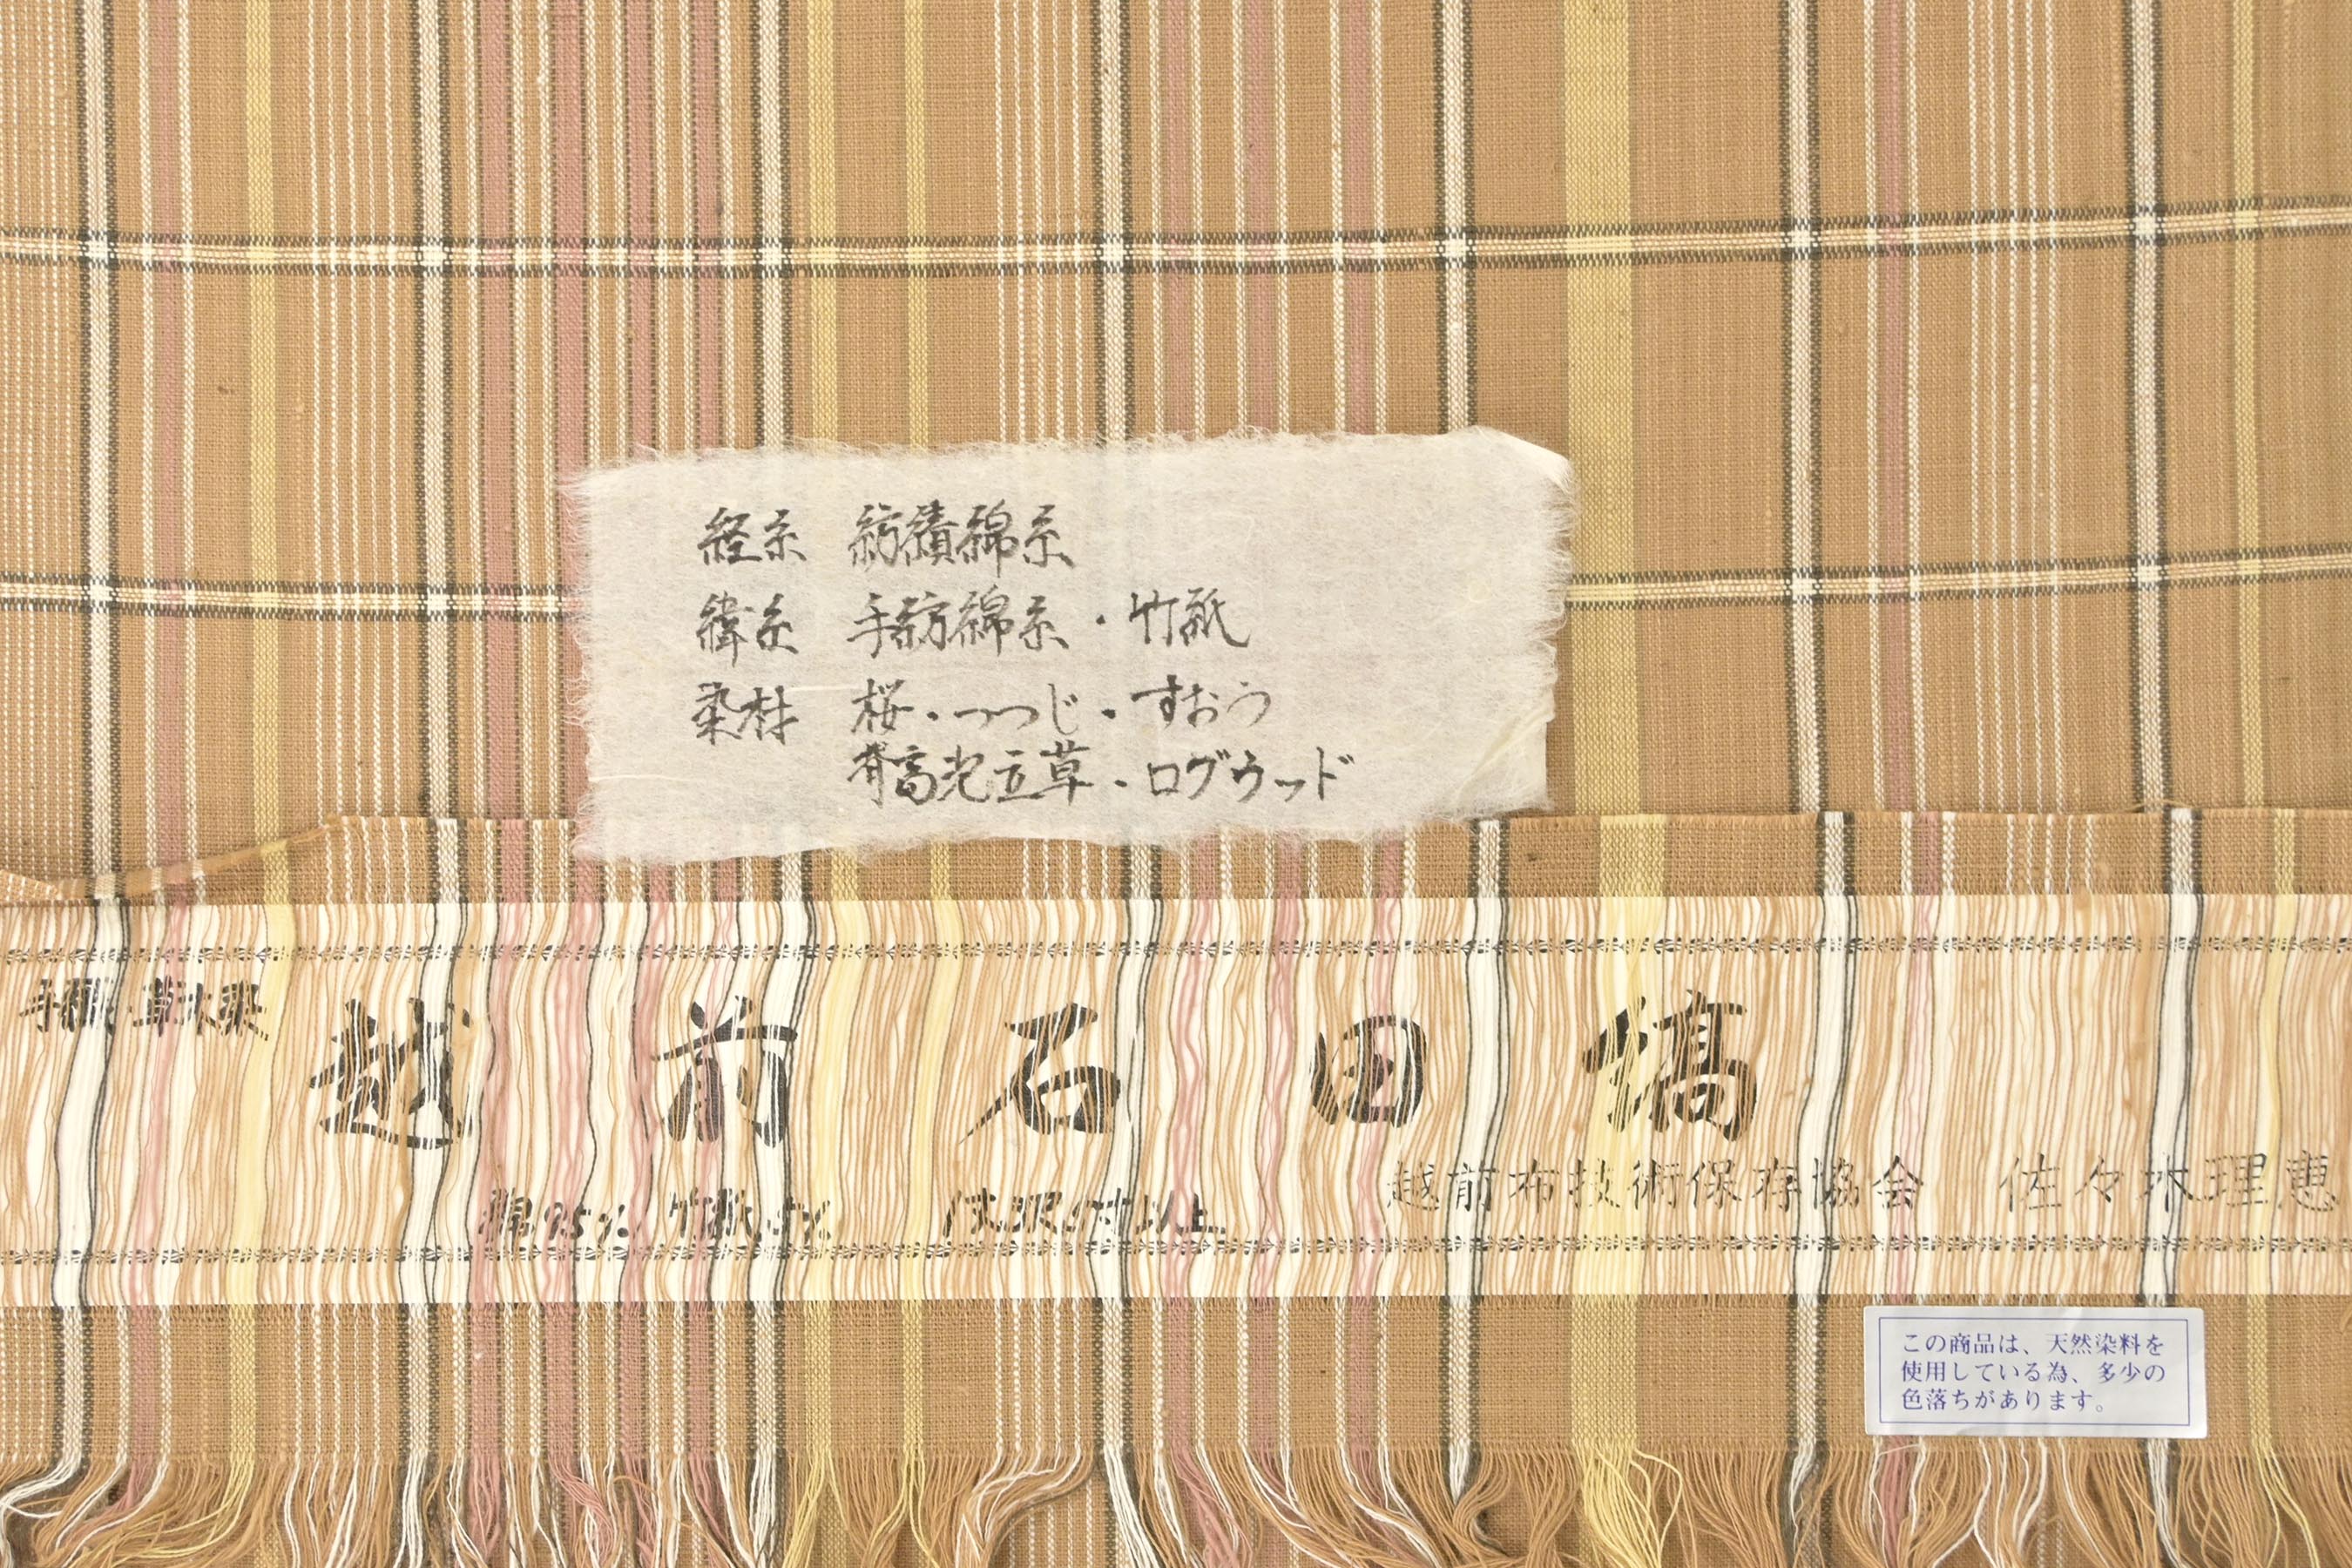 経糸 紡績綿糸
緯糸 手紡綿糸・竹紙
染材 桜・つつじ・すおう
背高泡立草・ログウッド
手織 草木染
越前石田縞
綿95% 竹紙5%
越前布技術保存協会 佐々木理恵
この商品は、天然染料を
使用している為、多少の
色落ちがあります。